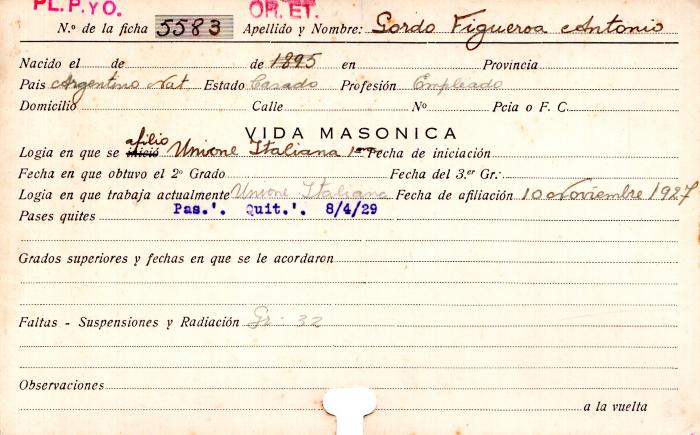 PL. P. YO. OR. ET.
N.º de la ficha 5583 Apellido y Nombre: Gordo Figueroa Antonio
Nacido el de de 1895 en Provincia
Pais Argentino Nat Estado Casado Profesión Empleado
Domicilio Calle Nº Pcia o F. C.
VIDA MASONICA
afilio
Logia en que se inició Unione Italiana 1ª Fecha de iniciación
Fecha en que obtuvo el 2º Grado Fecha del 3.er Gr:
Logia en que trabaja actualmente Unione Italiana Fecha de afiliación 10 Noviembre 1927
Pases quites Pas.'. Quit.'. 8/4/29
Grados superiores y fechas en que se le acordaron
Faltas - Suspensiones y Radiación Gr. 32
Observaciones
a la vuelta